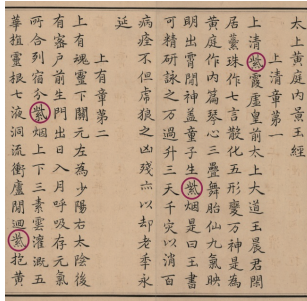 太上黃庭內景玉經
上清章第一
上清紫霞虛皇前太上大道玉晨君閑
居蘂珠作七言散化五形變万神是為
黃庭作內篇琴心三疊舞胎仙九氣映
明出霄間神盖童子生紫烟是曰玉書
可精研詠之万過升三天千灾以消百
病痊不但虎狼之凶殘亦以却老年永
延
上有章第二
上有魂靈下關元左為少陽右太陰後
有密戶前生門出日入月呼吸存元氣
所合列宿分紫烟上下三素雲灌溉五
華植靈根七液洞流衝廬間迴紫抱黃